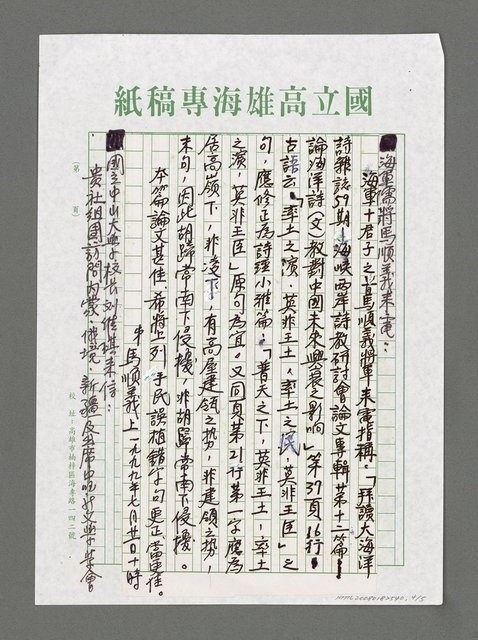 國立高雄海專稿紙
海軍儒將馬順義來電：
海軍十君子之一馬順義將軍來電指稱：「拜讀大海洋
詩雜誌59期海峽兩岸詩教研討會論文專輯廿第十二篇
論海洋詩(文)教對中國未來興衰之影響」第37頁16行
古語云：「率土之濱，莫非王土，率土之民，莫非王臣」之
句，應修正為詩經小雅篇：「普天之下，莫非王土，率土
之濱，莫非王臣」原句為宜。又同頁第21行第一字應為
居高嶺下，非凌下，有高屋建瓴之勢，非建領之勢，
末句，因此胡歸常南下侵擾，非胡歸常南下侵擾。
本篇論文甚佳，希將上列手民誤植錯字句更正當更佳。
弟馬順義上一九九九年七月廿一日十時
國立中山大學校長劉維琪來信：
貴社組團訪問內蒙、俄境、新疆及出席中
(第 頁)
校址：高雄市楠梓區海專路一四二號
HTML20080182540, 4/5